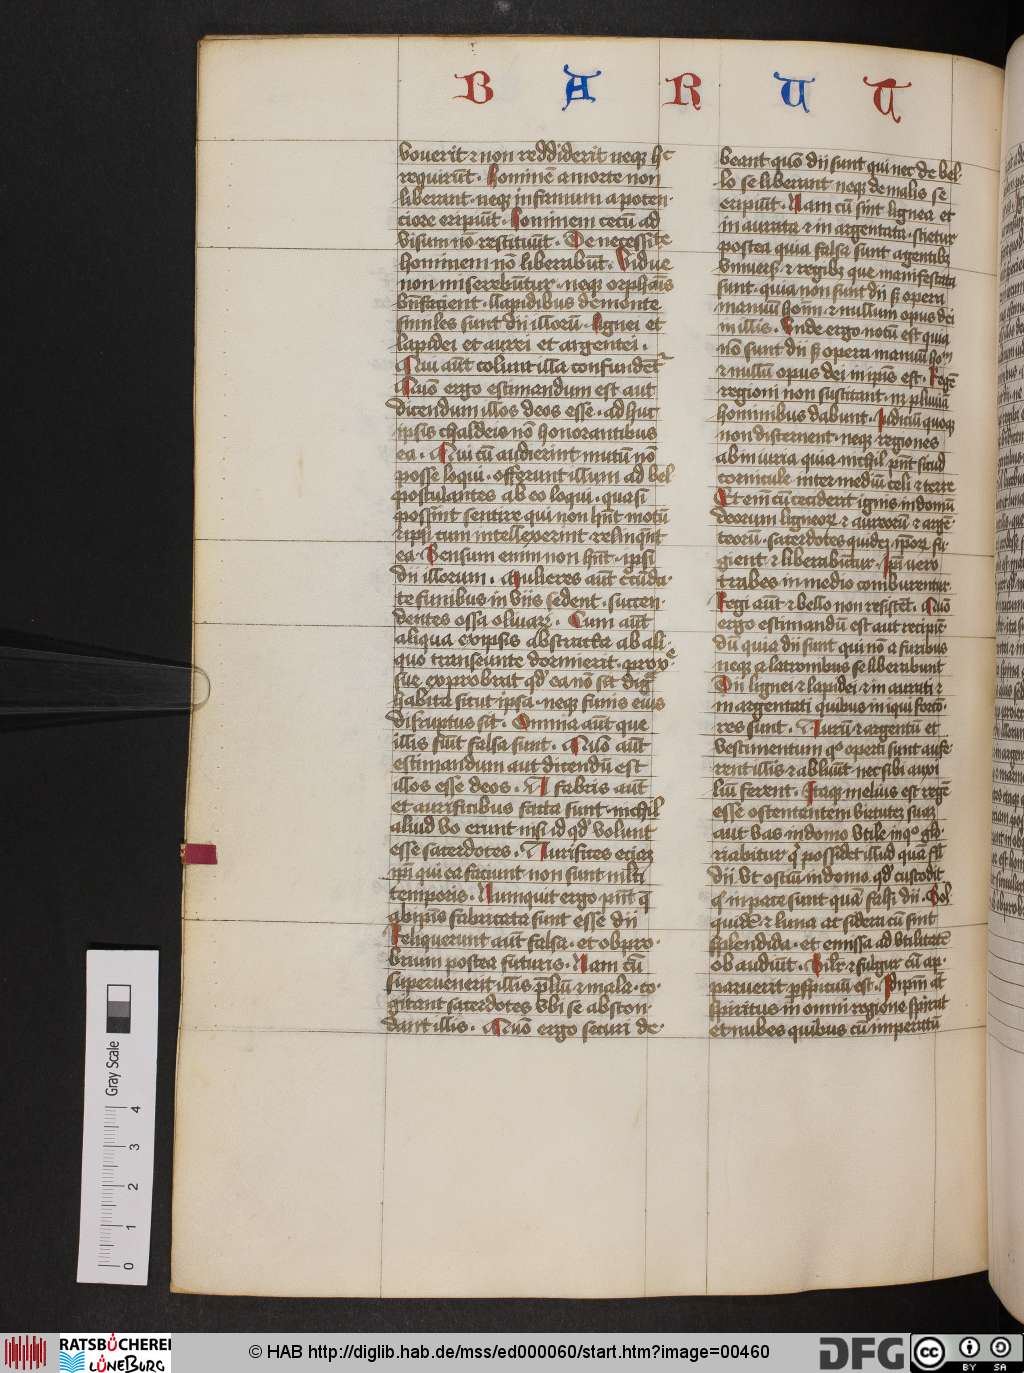 B A R U C
vouerit ⁊ non reddiderit neqꝫ hͨ
requirūt. Hominē a morte non
liberant. neqꝫ infirmum a poten-
ciore eripiūt. Hominem cecū ad
visum nō restituūt. De necessitͣte
hominem nō liberabūt. Vidue
non miserebūtur. neqꝫ orphāis
bn̄facient. Lapidibus de monte
similes sunt dii illorū. Lignei et
lapidei et aurei et argentei.
Qui aūt colunt illa confundētᷣ
Quō ergo estimandum est aut
dicendum illos deos esse. adhuc
ipsis chaldeis nō honorantibus
ea. Qui cū audierint mutū nō
posse loqui. offerunt illum ad bel
postulantes ab eo loqui. quasi
possint sentire qui non hn̄t motū
⁊ ipsi cum intellexerint. relinquēt
ea. Sensum enim non hn̄t. ipsi
dii illorum. Mulieres aūt circūda-
te funibus in viis sedent. succen-
dentes ossa oliuarꝫ. Cum aūt
aliqua ex ipsis abstracta ab ali-
quo transeunte dormierit. proxͤ
sue exprobrat qd' ea nō sit digͣ
habita sicut ipsa. neqꝫ funis eius
disruptus sit. Omnia aūt que
illis fiūt falsa sunt. Quō aūt
estimandum aut dicendū est
illos esse deos. A fabris aūt
et aurificibus facta sunt. nichil
aliud vō erunt nisi id qd' volunt
esse sacerdotes. Aurifices eciaꝫ
ip̄i qui ea faciunt non sunt mlti
temporis. Numquit ergo pn̄t q̄
ab ipis fabricata sunt esse dii
Reliquerunt aūt falsa. et obpro-
brium postea futuris. Nam cū
superuenerit illis p̄liū ⁊ mala. co-
gitant sacerdotes vbi se abscon-
dant illis. Quō ergo sciri de-
beant quō dii sunt qui nec de bel-
lo se liberant neqꝫ de malis se
eripiūt. Nam cū sint lignea et
in aurata ⁊ in argentata. scietur
postea quia falsa sunt a gentibꝫ
vniuers' ⁊ regibꝫ que manifestata
sunt. quia non sunt dii sꝫ opera
manuū hoīm. ⁊ nullum opus dei
in illis. Vnde ergo notū est quia
nō sunt dii sꝫ opera manuū hoīm
⁊ nullū opus dei in ipīs est. Regē
regioni non suscitant. nꝫ pluuiā
hominibus dabunt. Judiciū quoqꝫ
non discernent. neqꝫ regiones
ab iniuria quia nichil pn̄t sicud
cornicule inter mediū celi ⁊ terre
Et em̄ cū ceciderit ignis in domū
deorum ligneorꝫ ⁊ aureorū ⁊ argē-
teorū. sacerdotes quideꝫ ip̄orꝫ fu-
gient ⁊ liberabūtur. Ipi vero
trabes in medio comburentur
Regi aūt ⁊ bello non resistēt. Quō
ergo estimandū est aut recipiē-
dū quia dii sunt qui nō a furibus
neqꝫ a latronibus se liberabunt
Dii lignei ⁊ lapidei ⁊ in aurati ⁊
in argentati quibus iniqui forcō-
res sunt. Aurū ⁊ argentū et
vestimentum qͦ operti sunt aufe-
rent illis ⁊ abibūt nec sibi auxi
liū ferent. Itaqꝫ melius est regē
esse ostentantem virtuteꝫ suaꝫ
aut vas in domo vtile in qͦ glō-
riabitur qͥ possidet illud quā fl'i
dii vt ostiū in domo. qd' custodit
q̄ in pace sunt quā falsi dii. Sol
quidē ⁊ luna ac sidera cū sint
splendida. et emissa ad vtilitatē
obaudiūt. Silr̄ ⁊ fulgur cū ap-
paruerit p̱spicuū est. Idipm̄ aūt
spiritus in omni regione spirat
et nubes quibus cū imperatū
Gray Scale
0 1 2 3 4
RATSBÜCHEREI LÜNEBURG
© HAB http://diglib.hab.de/mss/ed000060/start.htm?image=00460
DFG
cc BY SA